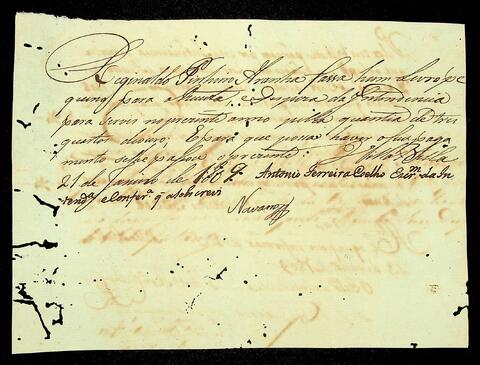 Reginaldo Pinheiro Aranha fassa hum Livro de
quing para a Receita e Despeza da Intendencia
para servir no prezente anno pella quantia de tres
quartos de ouro; E para que possa haver o seu paga
mento se lhe passou o prezente; Villa Bella
21 de Janeiro de 1809. Antonio Ferreira Coelho Escr.m da In
tend.ª e Confer.ª q a sobscrevi
Navarro